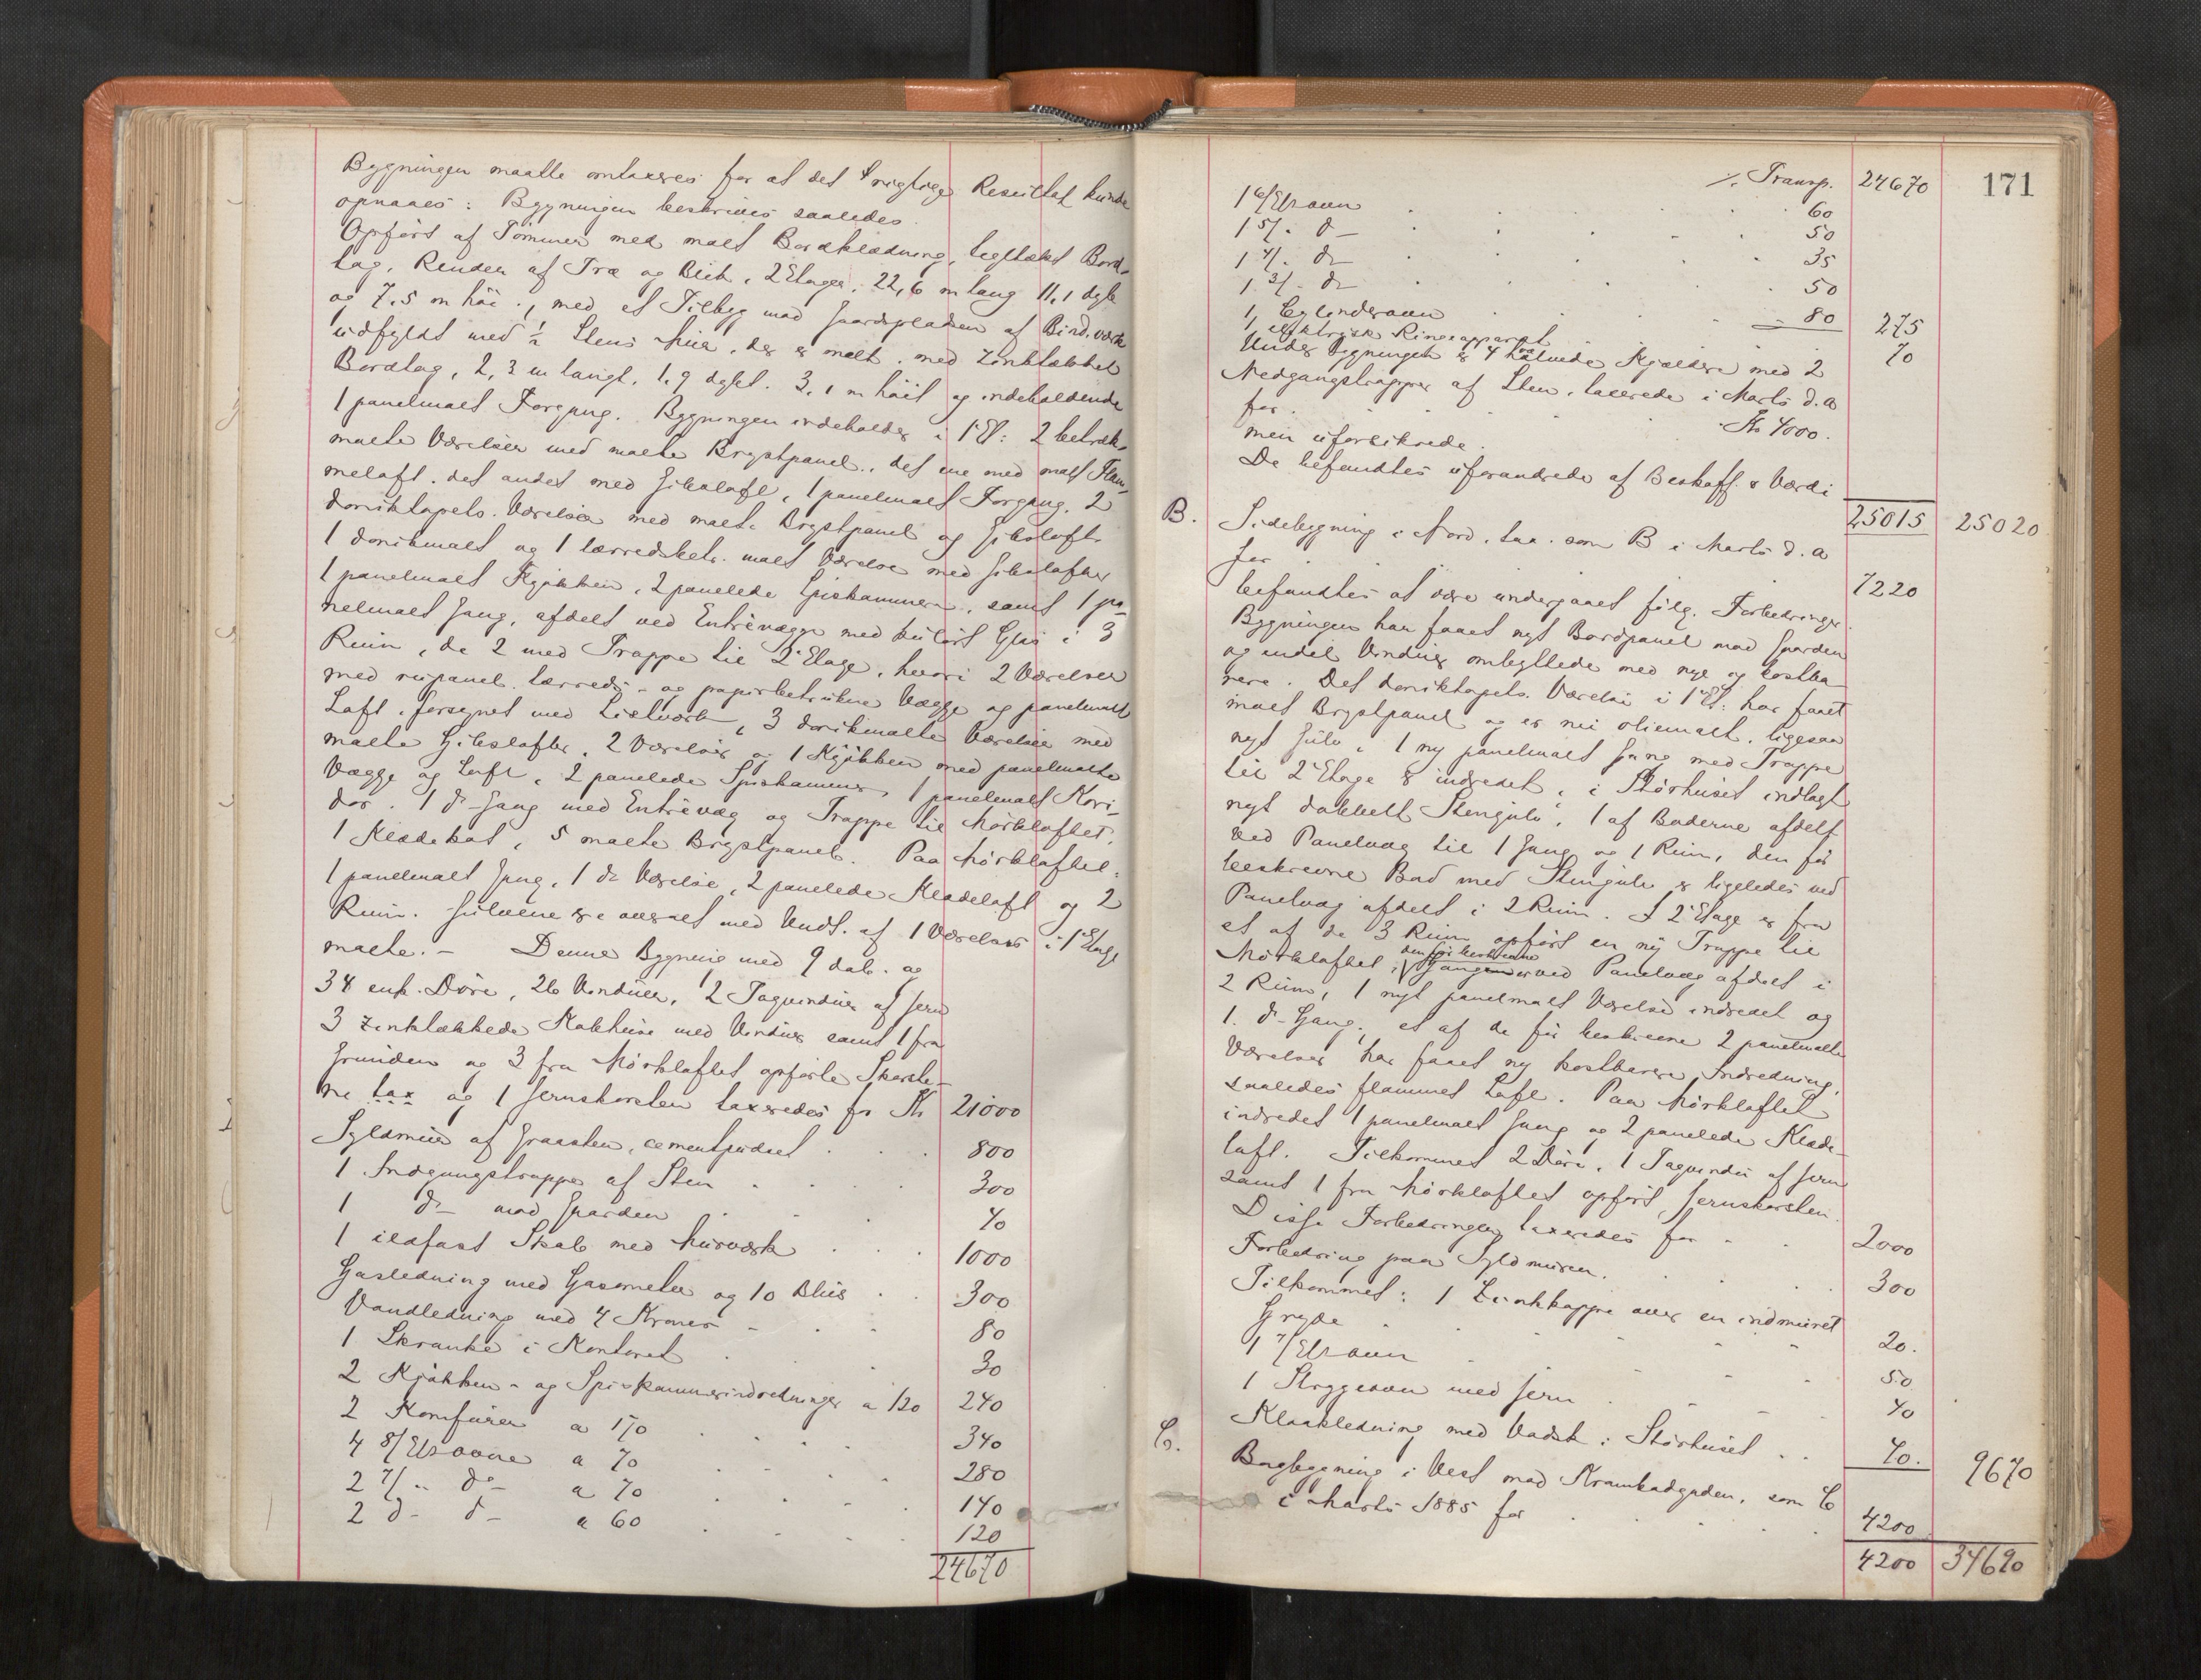 Bygningen maatte omtaxeres for at det rigtige Resultat kunde
opnaaes: Bygningen beskrives saaledes.
Opført af Tømmer med malt Bordklædning, tegltækt Bord-
tag, Render af Træ og Blik, 2 Etager, 22,6 m lang 11,1 dyb
og 7,5 m høi, med et Tilbyg mod Gaardspladsen af Bind.værk
udfyldt med ½ Stens Mur, der er malt, med Zinktækket
Bordtag, 2,3 m langt, 1,9 dybt, 3,1 m høit og indeholdende
1 panelmalt Forgang. Bygningen indeholder i 1 Et: 2 betræk-
malte Værelser med malte Brystpanel, det ene med malt Flam-
meloft, det andet med Gibsloft, 1 panelmalt Forgang, 2
doriktapets. Værelser med malte Brystpanel og Gibsloft
1 dorikmalt og 1 lærredsbetr. malt Værelse med Gibslofter
1 panelmalt Kjøkken, 2 panelede Spiskammere, samt 1 pa-
nelmalt Gang, afdelt ved Entrévægge med kulørt Glas i 3
Rum, de 2 med Trappe til 2' Etage, hvori 2 Værelser
med rupanel. lærreds- og papirbetrukne Vægge og panelmalt
Loft, forsynet med Listværk, 3 dorikmalte Værelser med
malte Gibslofter, 2 Værelser og 1 Kjøkken med panelmalte
Vægge og Loft, 2 panelede Spiskamme, 1 panelmalt Kori-
dor, 1 do Gang med Entrévæg og Trappe til Mørkloftet,
1 Klædekot, 5 malte Brystpanel. Paa Mørkloftet:
1 panelmalt Gang, 1 do Værelse, 2 panelede Klædeloft og 2
Rum. Gulvene ere overalt med Undt. af 1 Værelses i 1' Etage
malte. - Denne Bygning med 9 dob. og
34 enk. Døre, 26 Vinduer, 2 Tagvinduer af Jern
3 zinktækkede Kakhuse med Vinduer samt 1 fra
Grunden og 3 fra Mørkloftet opførte Skorste-
ne tax og 1 Jernskorsten taxeredes for Kr 21000
Syldmur af Graasten, cementpudset . . . 800
1 Indgangstrappe af Sten . . . . 300
1 do mod Gaarden . . . 40
1 ildfast Skab med Murværk . . . 1000
Gasledning med Gasometer og 10 Blus . . 300
Vandledning med 4 Kraner - . . 80
1 Skranke i Kontoret . . . 30
2 Kjøkken- og Spiskammerindredninger a 120 240
2 Komfurer a 170 . . . . 340
4 8/Etsovne a 70 . . . . 280
2 7/ " do a 70 . . . . 140
2 do - do - a 60 . . . . 120
24670
171
./. Transp. 24670
1 6/Etsovn . . . . . 60
1 5/- do . . . . . 50
1 4/- do . . . . . 35
1 3/- do . . . . . 50
1 Cylinderovn . . . . 80 275
1 elektrisk Ringeapparat 70
Under Bygningen er 4 hvælvede Kjældere med 2
Nedgangstrapper af Sten, taxerede i Marts d. A
for . . . . . Kr 4000.
men uforsikrede.
De befandtes uforandrede af Beskaff. & Værdi
25015 25020
B. Sidebygning i Nord, tax. som B i Marts d. A
for 7220
befandtes at være undergaaet følg. Forbedringer.
Bygningen har faaet nyt Bordpanel mod Gaarden
og endel Vinduer ombyttede med nye og kostba-
rere. Det doriktapets. Værelse i 1' Et: har faaet
malt Brystpanel og er nu oliemalt, ligesaa
nyt Gulv, 1 ny panelmalt Gang med Trappe
til 2' Etage er indredet, i Størhuset indlagt
nyt dobbelt Stengulv, 1 af Boderne afdelt
ved Panelvæg til 1 Gang og 1 Rum, den før
beskrevne Bod med Stengulv er ligeledes ved
Panelvæg afdelt i 2 Rum. I 2' Etage er fra
et af de 3 Rum opført en ny Trappe til
Mørkloftet, den før beskrevne Gangen er ved Panelvæg afdelt i
2 Rum, 1 nyt panelmalt Værelse indredet og
1. do Gang, et af de før beskrevne 2 panelmalte
Værelser har faaet ny kostbarere Indredning,
saaledes flammet Loft. Paa Mørkloftet
indredet 1 panelmalt Gang og 2 panelede Klæde-
loft. Tilkommet 2 Døre, 1 Tagvindu af Jern
samt 1 fra Mørkloftet opført Jernskorsten.
Disse Forbedringer taxeredes for - . 2000
Forbedring paa Syldmuren . . . . 300
Tilkommet: 1 Zinkkappe over en indmuret
Gryde . . . . . 20.
1 7/Etsovn . . . . 50
1 Strygeovn med Jern . . . . 40
Kloakledning med Vadsk i Størhuset . . 40. 9670
C. Bagbygning i Vest mod Krambodgaden, som C
i Marts 1885 for . . . . . 4200
4200 34690